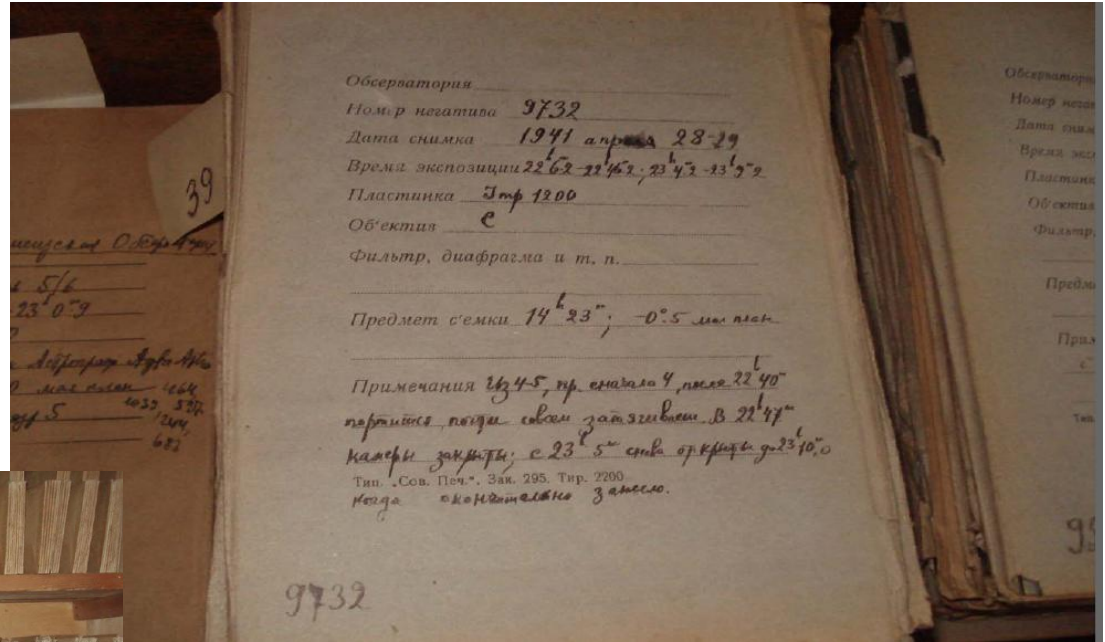 Обсерватория
Номер негатива 9732
Дата снимка 1941 апреля 28-29
Время экспозиции
Пластинка 1200
Об'ектив С
Фильтр, диафрагма и т. п.
Предмет с'емки 14ʰ23ᵐ; -0°.5 мал план
Примечания из 4-5, пр. сначала 4, после 22ʰ40ᵐ
портится, почти совсем затягивает. В 22ʰ47ᵐ
камеры закрыты; с 23ʰ5ᵐ снова открыты до 23ʰ10ᵐ.0
Тип. „Сов. Печ.“. Зак. 295. Тир. 2200
когда окончательно занесло.
9732
39
5/6
23ʰ0ᵐ.9
мал план 464,
1039,
244,
682
Обсерватори
Номер негат
Дата сним
Время экс
Пластинк
Об'ектив
Фильтр,
Предм
Прим
Тип.